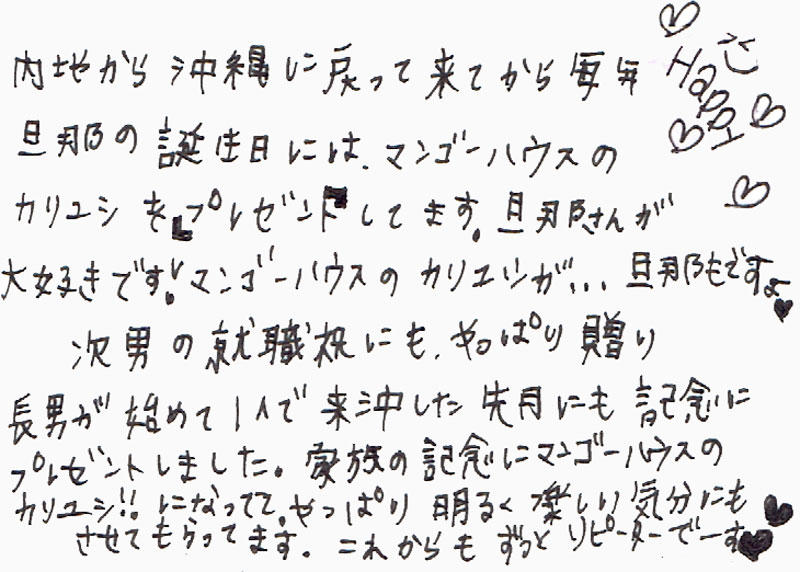 内地から沖縄に戻って来てから毎年
旦那の誕生日には、マンゴーハウスの
カリユシをプレゼントしてます。旦那さんが
大好きです!マンゴーハウスのカリユシが... 旦那もですよ
次男の就職祝にも、やっぱり贈り
長男が始めて1人で来沖した先月にも記念に
プレゼントしました。家族の記念にマンゴーハウスの
カリユシ!!になってて。やっぱり明るく楽しい気分にも
させてもらってます。これからもずっとリピーターでーす
Happy